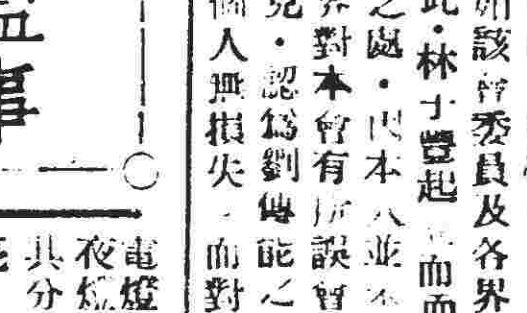 如該會委員及各界
此·林子豐起 而而
之處·因本人並不
界對本會有所誤會
見·認爲劉傳能之
個人無損失 而對
監事
電燈
夜燈
共分